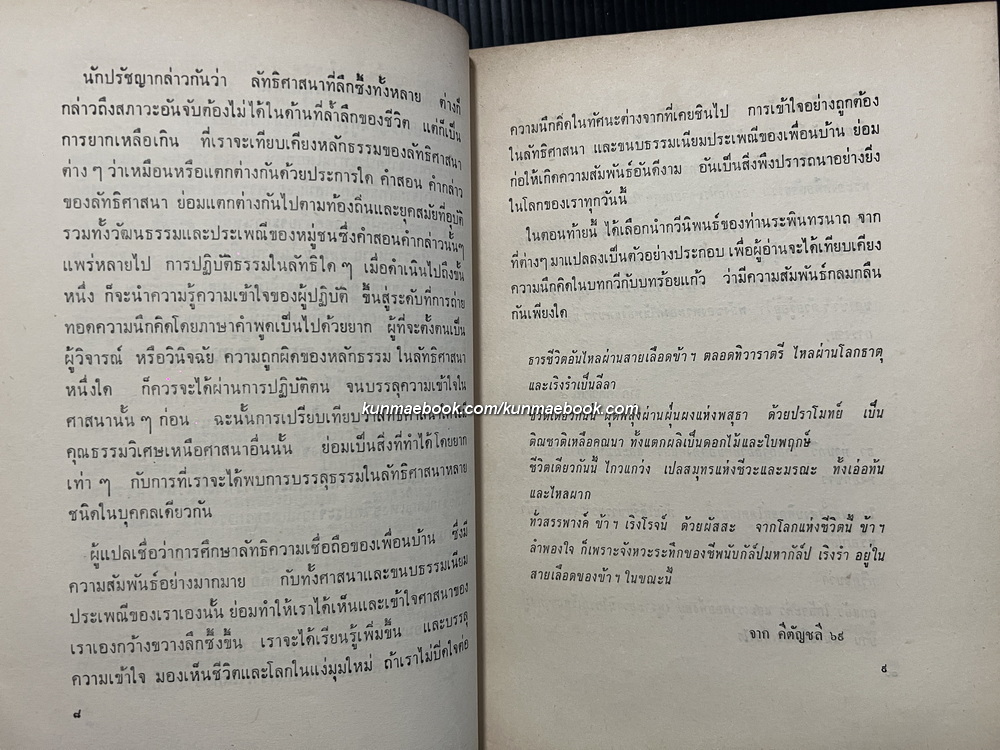 นักปรัชญากล่าวกันว่า ลัทธิศาสนาที่ลึกซึ้งทั้งหลาย ต่างก็
กล่าวถึงสภาวะอันจับต้องไม่ได้ในด้านที่ล้ำลึกของชีวิต แต่ก็เป็น
การยากเหลือเกิน ที่เราจะเทียบเคียงหลักธรรมของลัทธิศาสนา
ต่าง ๆ ว่าเหมือนหรือแตกต่างกันด้วยประการใด คำสอน คำกล่าว
ของลัทธิศาสนา ย่อมแตกต่างกันไปตามท้องถิ่นและยุคสมัยที่อุบัติ
รวมทั้งวัฒนธรรมและประเพณีของหมู่ชนซึ่งคำสอนคำกล่าวนั้นๆ
แพร่หลายไป การปฏิบัติธรรมในลัทธิใด ๆ เมื่อดำเนินไปถึงขั้น
หนึ่ง ก็จะนำความรู้ความเข้าใจของผู้ปฏิบัติ ขึ้นสู่ระดับที่การถ่าย
ทอดความนึกคิดโดยภาษาคำพูดเป็นไปด้วยยาก ผู้ที่จะตั้งตนเป็น
ผู้วิจารณ์ หรือวินิจฉัย ความถูกผิดของหลักธรรม ในลัทธิศาสนา
หนึ่งใด ก็ควรจะได้ผ่านการปฏิบัติตน จนบรรลุความเข้าใจใน
ศาสนานั้น ๆ ก่อน ฉะนั้นการเปรียบเทียบว่าลัทธิศาสนา
คุณธรรมวิเศษเหนือศาสนาอื่นนั้น ย่อมเป็นสิ่งที่ทำได้โดยยาก
เท่า ๆ กับการที่เราจะได้พบการบรรลุธรรมในลัทธิศาสนาหลาย
ชนิดในบุคคลเดียวกัน
ผู้แปลเชื่อว่าการศึกษาลัทธิความเชื่อถือของเพื่อนบ้าน ซึ่งมี
ความสัมพันธ์อย่างมากมาย กับทั้งศาสนาและขนบธรรมเนียม
ประเพณีของเราเองนั้น ย่อมทำให้เราได้เห็นและเข้าใจศาสนาของ
เราเองกว้างขวางลึกซึ้งขึ้น เราจะได้เรียนรู้เพิ่มขึ้น และบรรลุ
ความเข้าใจ มองเห็นชีวิตและโลกในแง่มุมใหม่ ถ้าเราไม่ปิดใจต่อ
๘
ความนึกคิดในทัศนะต่างจากที่เคยชินไป การเข้าใจอย่างถูกต้อง
ในลัทธิศาสนา และขนบธรรมเนียมประเพณีของเพื่อนบ้าน ย่อม
ก่อให้เกิดความสัมพันธ์อันดีงาม อันเป็นสิ่งพึงปรารถนาอย่างยิ่ง
ในโลกของเราทุกวันนี้
ในตอนท้ายนี้ ได้เลือกนำกวีนิพนธ์ของท่านระพินทรนาถ จาก
ที่ต่างๆ มาแปลลงเป็นตัวอย่างประกอบ เพื่อผู้อ่านจะได้เทียบเคียง
ความนึกคิดในบทกวีกับบทร้อยแก้ว ว่ามีความสัมพันธ์กลมกลืน
กันเพียงใด
ธารชีวิตอันไหลผ่านสายเลือดข้า ฯ ตลอดทิวาราตรี ไหลผ่านโลกธาตุ
และเริงรำเป็นลีลา
kunmaebook.com/kunmaebook.com
ชีวิตเดียวกันนี้ ผุดพลุ่งผ่านฝุ่นผงแห่งพสุธา ด้วยปราโมทย์ เป็น
ติณชาติเหลือคณนา ทั้งแตกผลิเป็นดอกไม้และใบพฤกษ์
ชีวิตเดียวกันนี้ ไกวแกว่ง เปลสมุทรแห่งชีวะและมรณะ ทั้งเอ่อทัน
และไหลผาก
ทั่วสรรพางค์ ข้า ฯ เริงโรจน์ ด้วยผัสสะ จากโลกแห่งชีวิตนี้ ข้า ฯ
ลำพองใจ ก็เพราะจังหวะระทึกของชีพนับกัลป์มหากัลป์ เริงรำ อยู่ใน
สายเลือดของข้า ฯ ในขณะนี้
จาก คีตัญชลี ๖๙
๙